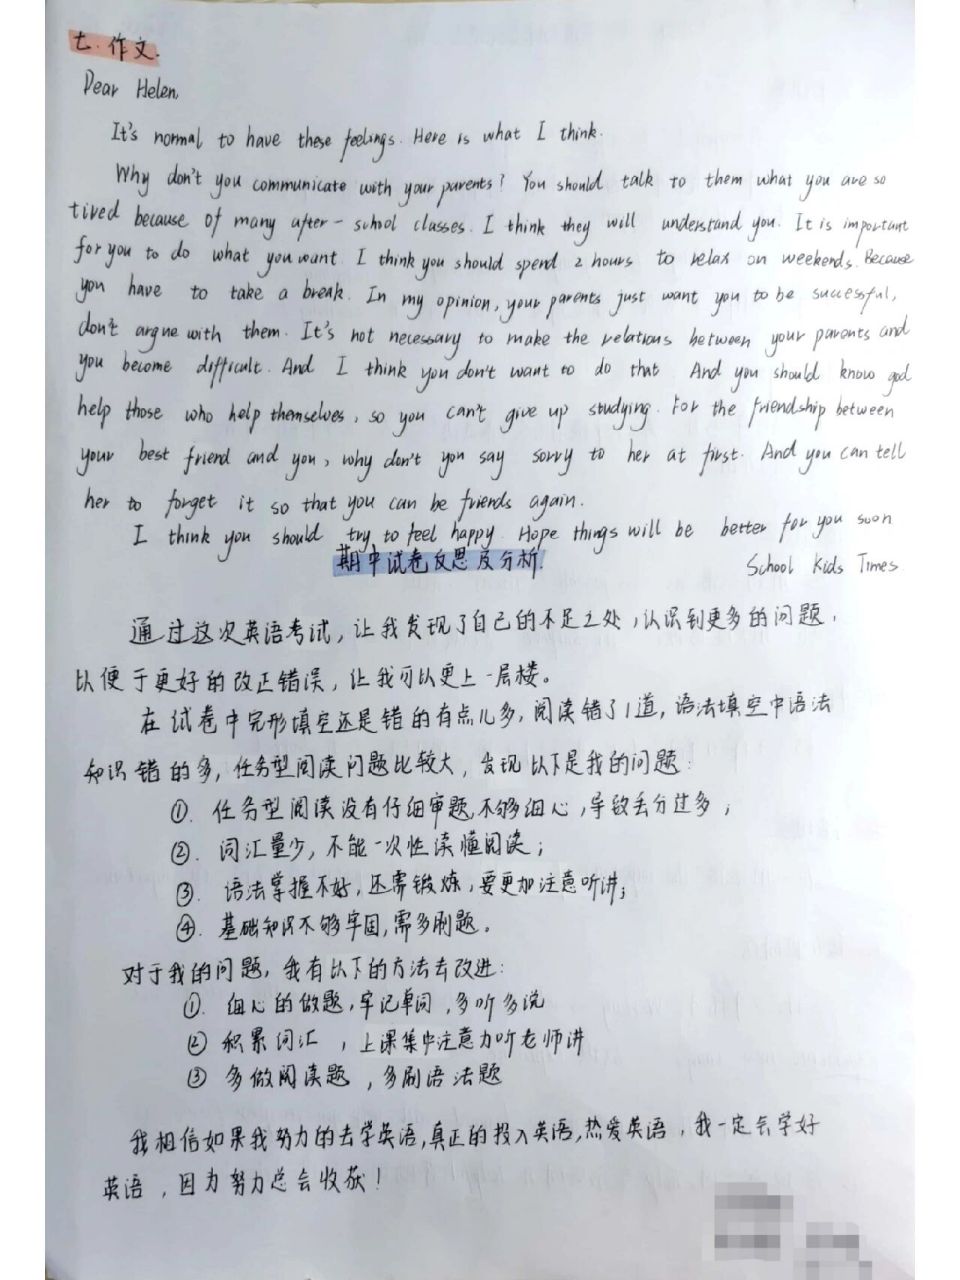 七.作文.
Dear Helen,
It's normal to have these feelings. Here is what I think.
Why don't you communicate with your parents? You should talk to them what you are so
tired because of many after-school classes. I think they will understand you. It is important
for you to do what you want. I think you should spend 2 hours to relax on weekends. Because
you have to take a break. In my opinion, your parents just want you to be successful,
don't argue with them. It's not necessary to make the relations between your parents and
you become difficult. And I think you don't want to do that And you should know god
help those who help themselves, so you can't give up studying. For the friendship between
your best friend and you, why don't you say sorry to her at first. And you can tell
her to forget it so that you can be friends again.
I think you should try to feel happy. Hope things will be better for you soon
School Kids Times
期中试卷反思及分析.
通过这次英语考试，让我发现了自己的不足之处，认识到更多的问题，
以便于更好的改正错误，让我可以更上一层楼。
在试卷中完形填空还是错的有点儿多，阅读错了1道，语法填空中语法
知识错的多，任务型阅读问题比较大，发现以下是我的问题：
①. 任务型阅读没有仔细审题,不够细心，导致丢分过多；
②. 词汇量少，不能一次性读懂阅读；
③. 语法掌握不好，还需锻炼，要更加注意听讲；
④. 基础知识不够牢固，需多刷题。
对于我的问题，我有以下的方法去改进：
①. 细心的做题，牢记单词，多听多说
② 积累词汇，上课集中注意力听老师讲
③ 多做阅读题，多刷语法题
我相信如果我努力的去学英语,真正的投入英语,热爱英语，我一定会学好
英语，因为努力总会收获！